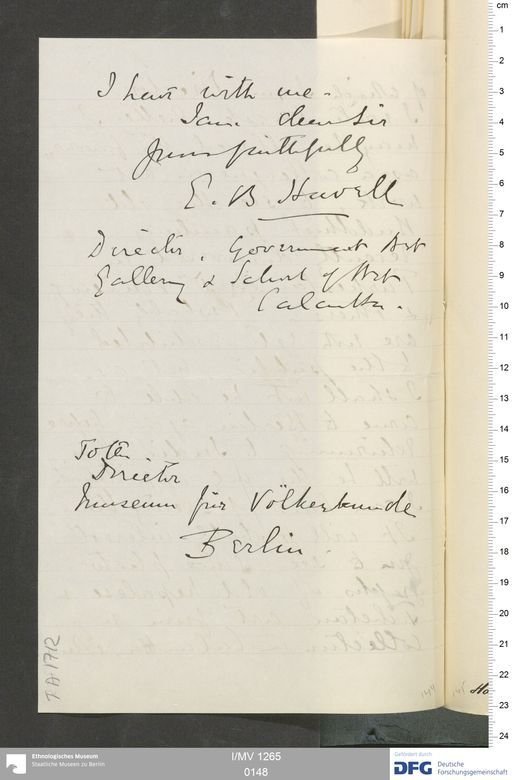 I have with me.
I am dear Sir
Yours faithfully
E. B Havell
Director, Government Art
Gallery & School of Art
Calcutta.
To the
Director
Museum für Völkerkunde
Berlin
cm
1
2
3
4
5
6
7
8
9
10
11
12
13
14
15
16
17
18
19
20
21
22
23
24
Ethnologisches Museum
Staatliche Museen zu Berlin
I/MV 1265
0148
Gefördert durch
DFG Deutsche
Forschungsgemeinschaft